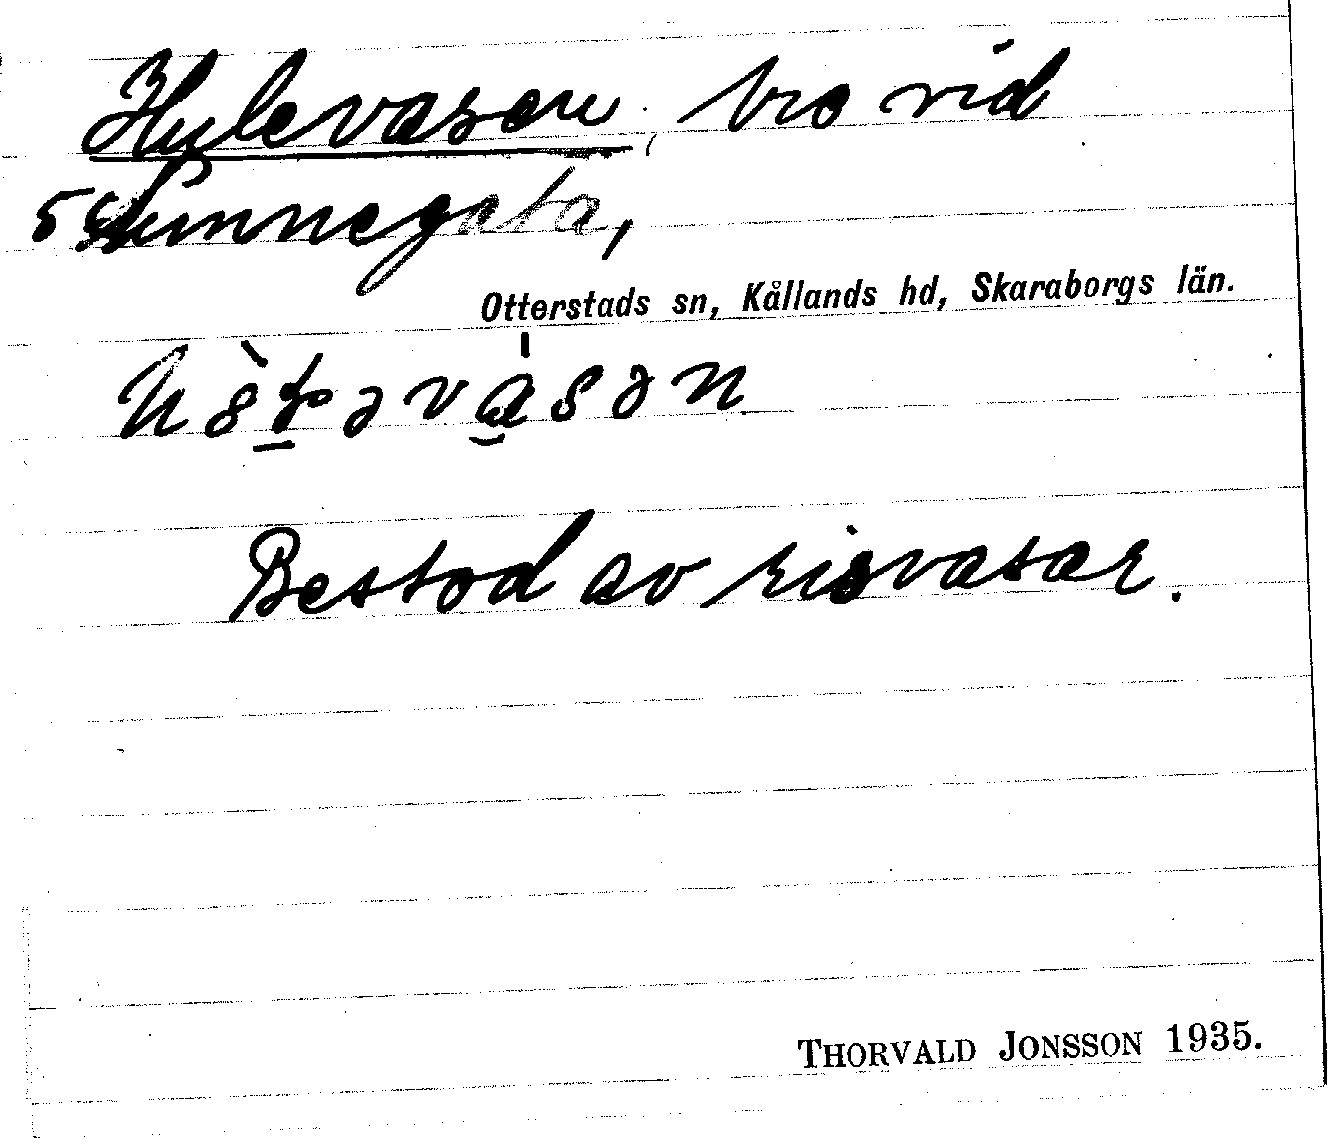 Hulevasen, bro vid
Sunnegata,
Otterstads sn, Kållands hd, Skaraborgs län.
Bestod av risvasar.
THORVALD JONSSON 1935.